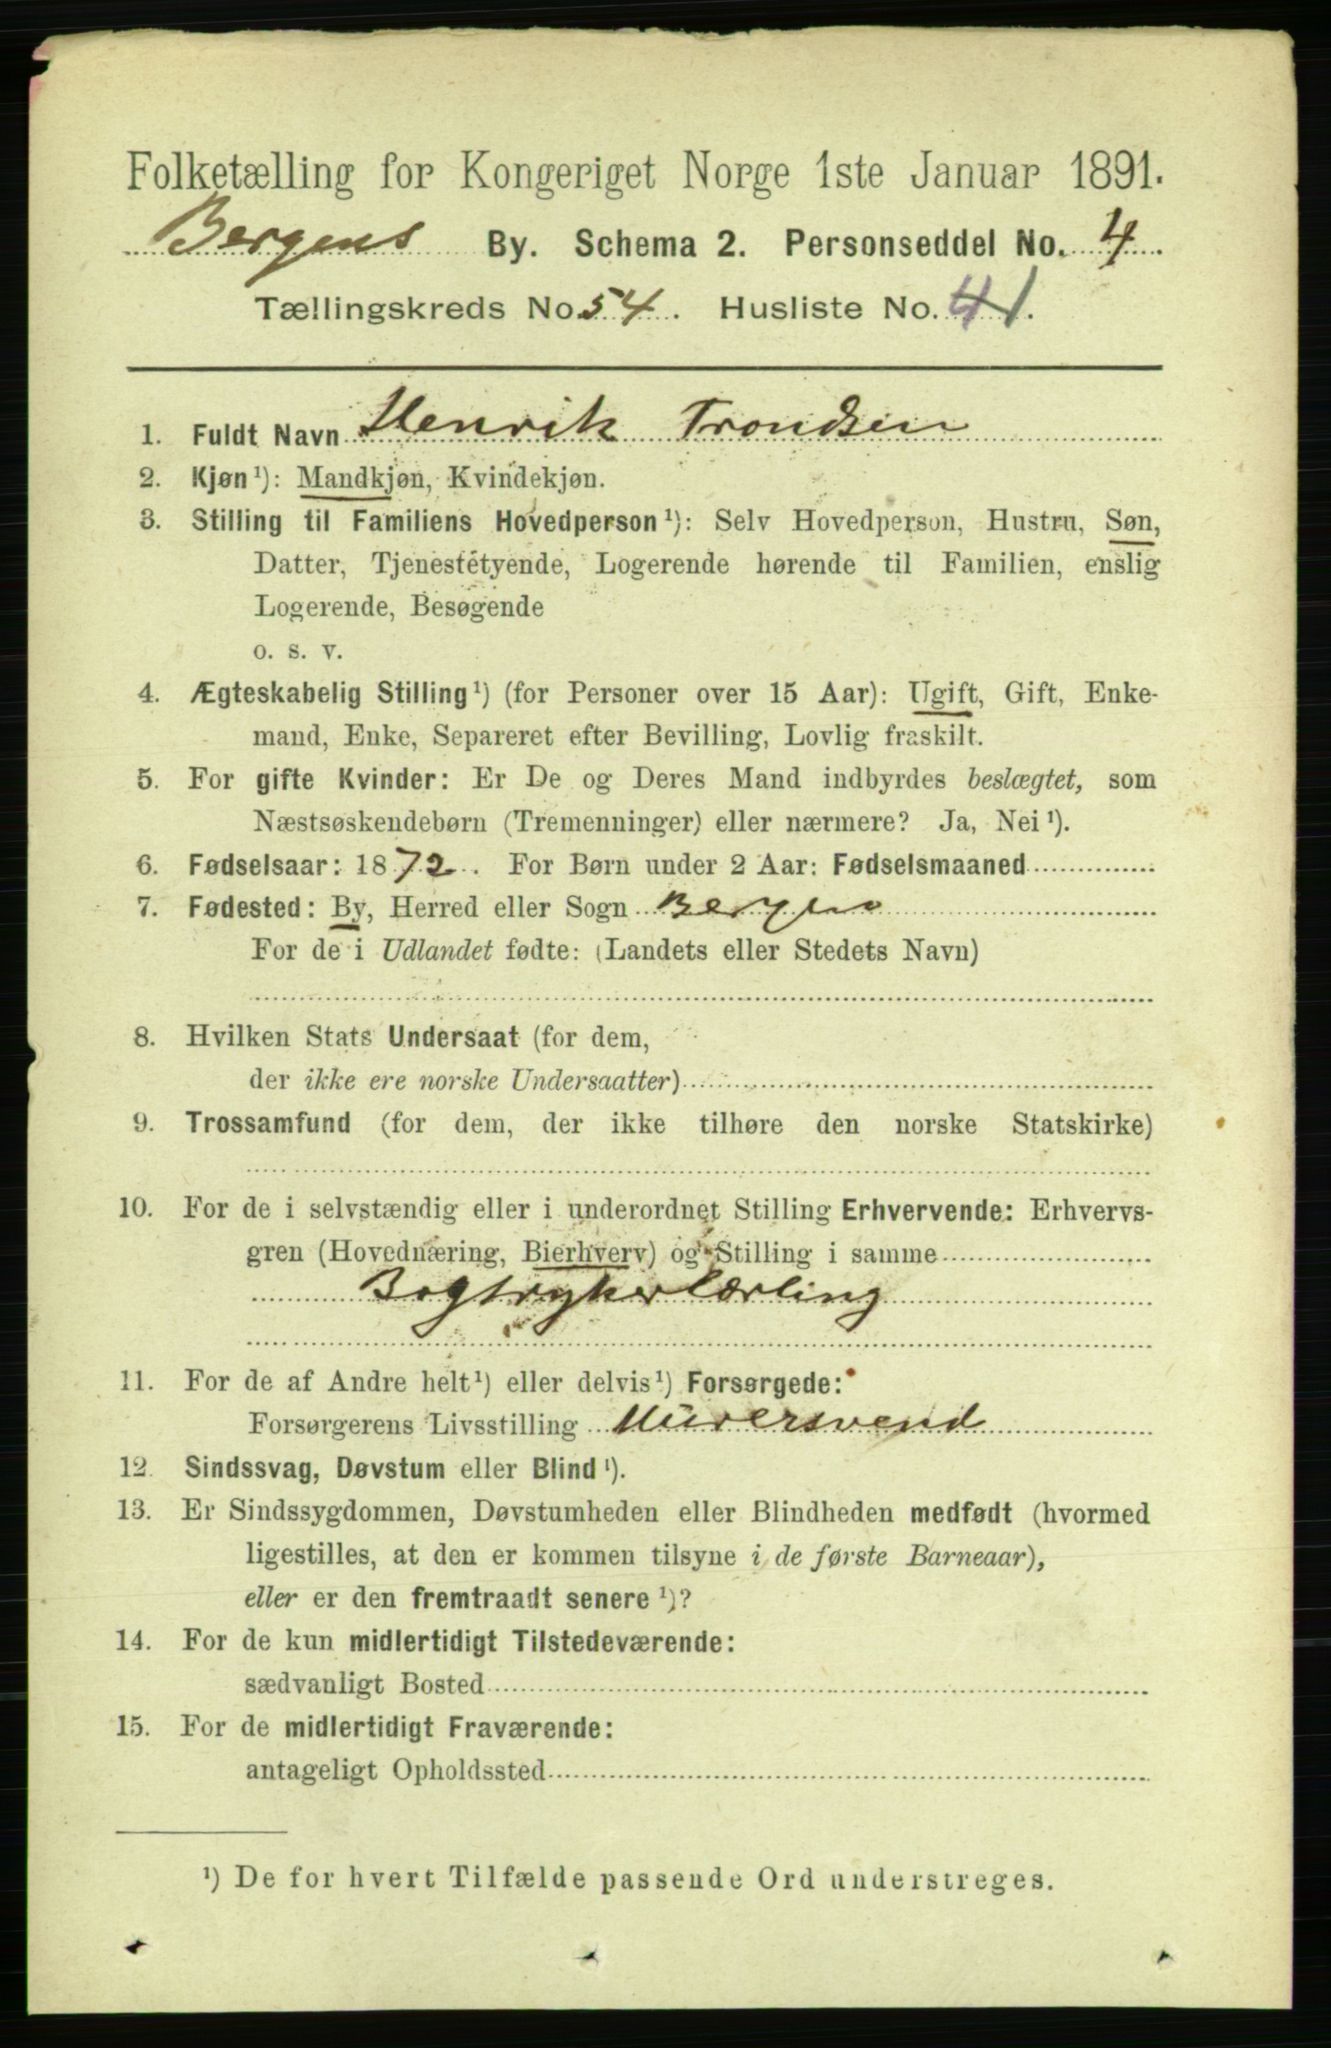 Folketælling for Kongeriget Norge 1ste Januar 1891.
Bergens By. Schema 2. Personseddel No. 4.
Tællingskreds No. 54. Husliste No. 41.
1. Fuldt Navn Henrik Trondsen
2. Kjøn¹): Mandkjøn, Kvindekjøn.
3. Stilling til Familiens Hovedperson¹): Selv Hovedperson, Hustru, Søn,
Datter, Tjenestetyende, Logerende hørende til Familien, enslig
Logerende, Besøgende
o. s. v.
4. Ægteskabelig Stilling¹) (for Personer over 15 Aar): Ugift, Gift, Enke-
mand, Enke, Separeret efter Bevilling, Lovlig fraskilt.
5. For gifte Kvinder: Er De og Deres Mand indbyrdes beslægtet, som
Næstsøskendebørn (Tremenninger) eller nærmere? Ja, Nei¹).
6. Fødselsaar: 1872. For Børn under 2 Aar: Fødselsmaaned
7. Fødested: By, Herred eller Sogn Bergen
For de i Udlandet fødte: (Landets eller Stedets Navn)
8. Hvilken Stats Undersaat (for dem,
der ikke ere norske Undersaatter)
9. Trossamfund (for dem, der ikke tilhøre den norske Statskirke)
10. For de i selvstændig eller i underordnet Stilling Erhvervende: Erhvervs-
gren (Hovednæring, Bierhverv) og Stilling i samme
Bogtrykerlærling
11. For de af Andre helt¹) eller delvis¹) Forsørgede:
Forsørgerens Livsstilling Murersvend
12. Sindssvag, Døvstum eller Blind¹).
13. Er Sindssygdommen, Døvstumheden eller Blindheden medfødt (hvormed
ligestilles, at den er kommen tilsyne i de første Barneaar),
eller er den fremtraadt senere¹)?
14. For de kun midlertidigt Tilstedeværende:
sædvanligt Bosted
15. For de midlertidigt Fraværende:
antageligt Opholdssted
¹) De for hvert Tilfælde passende Ord understreges.